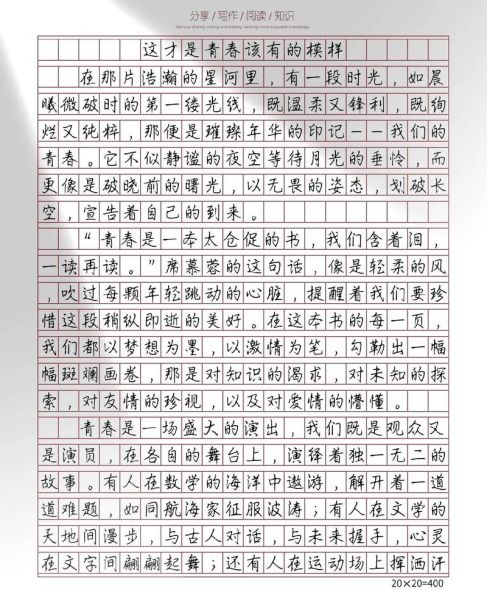 分享/写作/阅读/知识
We love sharing writing and reading, making more enjoyable knowledge
这才是青春该有的模样
在那片浩瀚的星河里，有一段时光，如晨
曦微破时的第一缕光线，既温柔又锋利，既绚
烂又纯粹，那便是璀璨年华的印记——我们的
青春。它不似静谧的夜空等待月光的垂怜，而
更像是破晓前的曙光，以无畏的姿态，划破长
空，宣告着自己的到来。
“青春是一本太仓促的书，我们含着泪，
一读再读。”席慕蓉的这句话，像是轻柔的风
，吹过每颗年轻跳动的心脏，提醒着我们要珍
惜这段稍纵即逝的美好。在这本书的每一页，
我们都以梦想为墨，以激情为笔，勾勒出一幅
幅斑斓画卷，那是对知识的渴求，对未知的探
索，对友情的珍视，以及对爱情的懵懂。
青春是一场盛大的演出，我们既是观众又
是演员，在各自的舞台上，演绎着独一无二的
故事。有人在数学的海洋中遨游，解开着一道
道难题，如同航海家征服波涛；有人在文学的
天地间漫步，与古人对话，与未来握手，心灵
在文字间翩翩起舞；还有人在运动场上挥洒汗
20×20=400